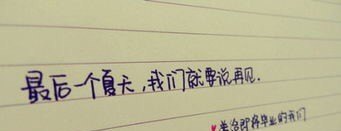 最后一个夏天，我们就要说再见.
美给即将毕业的我们